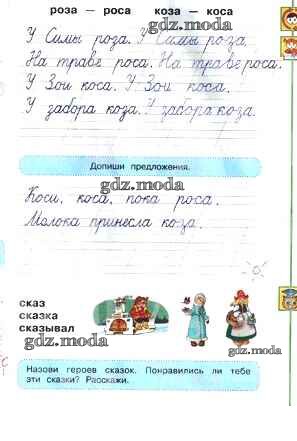 роза — роса коза — коса
gdz.moda
У Симы роза. У Симы роза.
На траве роса. На траве роса.
У Зои коса. У Зои коса.
У забора коза. У забора коза.
Допиши предложения.
gdz.moda
Коси, коса, пока роса.
Молока принесла коза.
gdz.moda
сказ
сказка
сказывал
gdz.moda
gdz.moda
Назови героев сказок. Понравились ли тебе
эти сказки? Расскажи.
gdz.moda